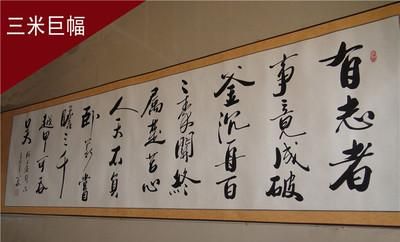 三米巨幅
有志者
事竟成破
釜沉舟百
二秦關終
属楚苦心
人天不負
卧薪嘗
膽三千
越甲可吞
吴